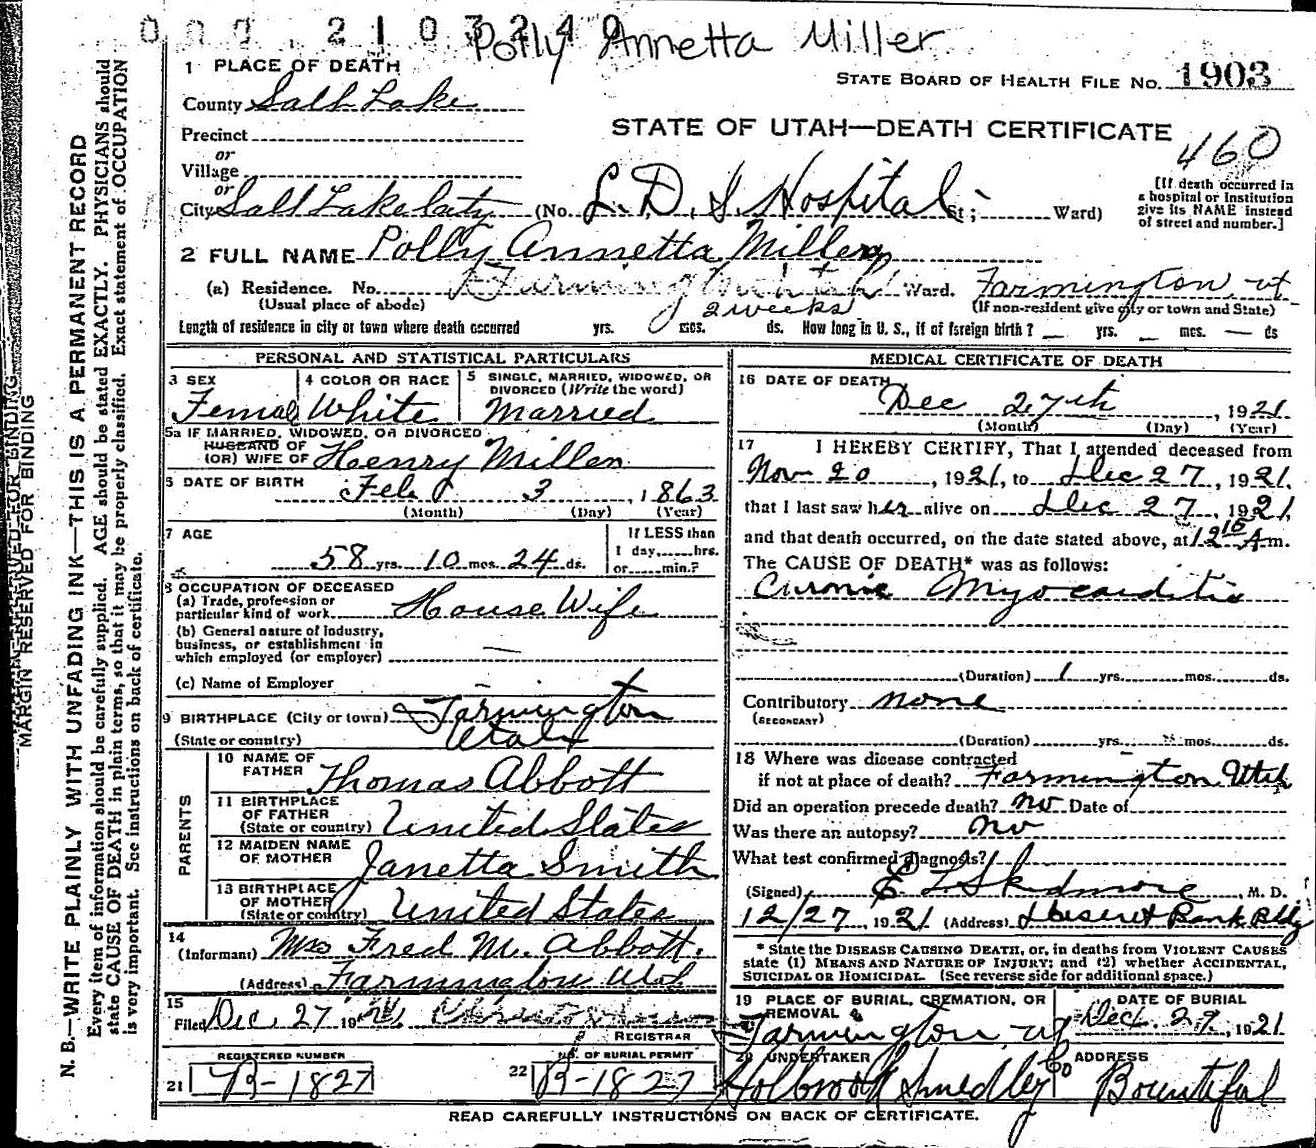 000.2103240
Polly Annetta Miller
1 PLACE OF DEATH
STATE BOARD OF HEALTH FILE NO. 1903
County Salt Lake
Precinct
STATE OF UTAH—DEATH CERTIFICATE
460
or
Village
or
City Salt Lake City (No. L.D.S. Hospital St; Ward)
[If death occurred in
a hospital or Institution
give its NAME instead
of street and number.]
2 FULL NAME Polly Annetta Miller
(a) Residence. No. Farmington Utah Ward. Farmington, ut
(Usual place of abode) (If non-resident give city or town and State)
2 weeks
Length of residence in city or town where death occurred yrs. mos. ds. How long in U. S., if of foreign birth? — yrs. mos. — ds
PERSONAL AND STATISTICAL PARTICULARS
3 SEX
Femal
4 COLOR OR RACE
White
5 SINGLE, MARRIED, WIDOWED, OR
DIVORCED (Write the word)
Married
5a IF MARRIED, WIDOWED, OR DIVORCED
HUSBAND OF
(OR) WIFE OF Henry Miller
6 DATE OF BIRTH Feb 3, 1863
(Month) (Day) (Year)
7 AGE
58 yrs. 10 mos. 24 ds.
If LESS than
1 day,......hrs.
or......min.?
8 OCCUPATION OF DECEASED
(a) Trade, profession or
particular kind of work House Wife
(b) General nature of industry,
business, or establishment in
which employed (or employer) —
(c) Name of Employer
9 BIRTHPLACE (City or town) Farmington
(State or country) Utah
PARENTS
10 NAME OF
FATHER Thomas Abbott
11 BIRTHPLACE
OF FATHER
(State or country) United States
12 MAIDEN NAME
OF MOTHER Janetta Smith
13 BIRTHPLACE
OF MOTHER
(State or country) United States
14
(Informant) Mrs Fred M. Abbott.
(Address) Farmington Utah
15
Filed Dec. 27 19
REGISTRAR
REGISTERED NUMBER
21 B-1827
NO. OF BURIAL PERMIT
22 B-1827
MEDICAL CERTIFICATE OF DEATH
16 DATE OF DEATH
Dec 27th, 1921
(Month) (Day) (Year)
17 I HEREBY CERTIFY, That I attended deceased from
Nov 20, 1921, to Dec 27, 1921,
that I last saw her alive on Dec 27, 1921,
and that death occurred, on the date stated above, at 12 15 A m.
The CAUSE OF DEATH* was as follows:
Curonic Myocarditis
(Duration) 1 yrs. mos. ds.
Contributory none
(SECONDARY)
(Duration) yrs. mos. ds.
18 Where was disease contracted
if not at place of death? Farmington Utah
Did an operation precede death? no Date of
Was there an autopsy? no
What test confirmed diagnosis?
(Signed) E L Skidmore, M. D.
12/27, 1921 (Address) Deseret Bank Bldg
* State the DISEASE CAUSING DEATH, or, in deaths from VIOLENT CAUSES
state (1) MEANS AND NATURE OF INJURY; and (2) whether ACCIDENTAL,
SUICIDAL OR HOMICIDAL. (See reverse side for additional space.)
19 PLACE OF BURIAL, CREMATION, OR
REMOVAL
Farmington, ut
DATE OF BURIAL
Dec. 29, 1921
20 UNDERTAKER
Holbrook Smedley Co
ADDRESS
Bountiful
READ CAREFULLY INSTRUCTIONS ON BACK OF CERTIFICATE.
MARGIN RESERVED FOR BINDING
N. B.—WRITE PLAINLY WITH UNFADING INK—THIS IS A PERMANENT RECORD
Every item of information should be carefully supplied. AGE should be stated EXACTLY. PHYSICIANS should
state CAUSE OF DEATH in plain terms, so that it may be properly classified. Exact statement of OCCUPATION
is very important. See instructions on back of certificate.